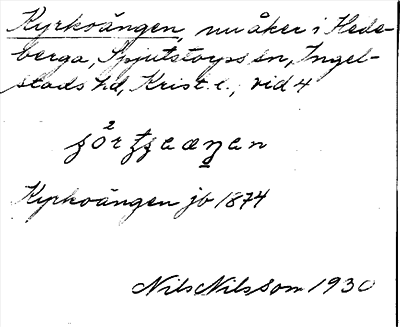 Kyrkoängen, nu åker i Hede-
berga, Spjutstorps sn, Ingel-
stads hd, Krist. l., vid 4
Kyrkoängen jb 1874
Nils Nilsson 1930